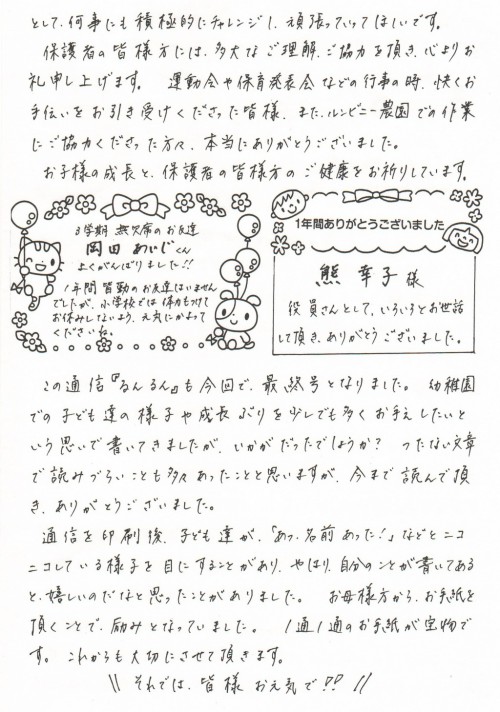 として、何事にも積極的にチャレンジし、頑張っていってほしいです。
保護者の皆様方には、多大なご理解、ご協力を頂き、心よりお
礼申し上げます。 運動会や保育発表会などの行事の時、快くお
手伝いをお引き受けくださった皆様、また、ルンビニー農園での作業
にご協力くださった方々、本当にありがとうございました。
お子様の成長と、保護者の皆様方のご健康をお祈りしています。
3学期 無欠席のお友達
岡田 あいじくん
よくがんばりました!!
1年間 皆勤のお友達はいません
でしたが、小学校では体力もつけて
お休みしないよう、元気にかよって
くださいね。
1年間ありがとうございました
熊 幸子 様
役員さんとして、いろいろとお世話
して頂き、ありがとうございました。
この通信『るんるん』も今回で、最終号となりました。 幼稚園
での子ども達の様子や成長ぶりを少しでも多くお伝えしたいと
いう思いで書いてきましたが、いかがだったでしょうか? つたない文章
で読みづらいことも多々あったことと思いますが、今まで読んで頂
き、ありがとうございました。
通信を印刷後、子ども達が、「あっ、名前あった!」などとニコ
ニコしている様子を目にすることがあり、やはり、自分のことが書いてある
と、嬉しいのだなと思ったことがありました。 お母様方から、お手紙を
頂くことで、励みとなっていました。 1通1通のお手紙が宝物で
す。 これからも大切にさせて頂きます。
\\ それでは、皆様 お元気で!! //